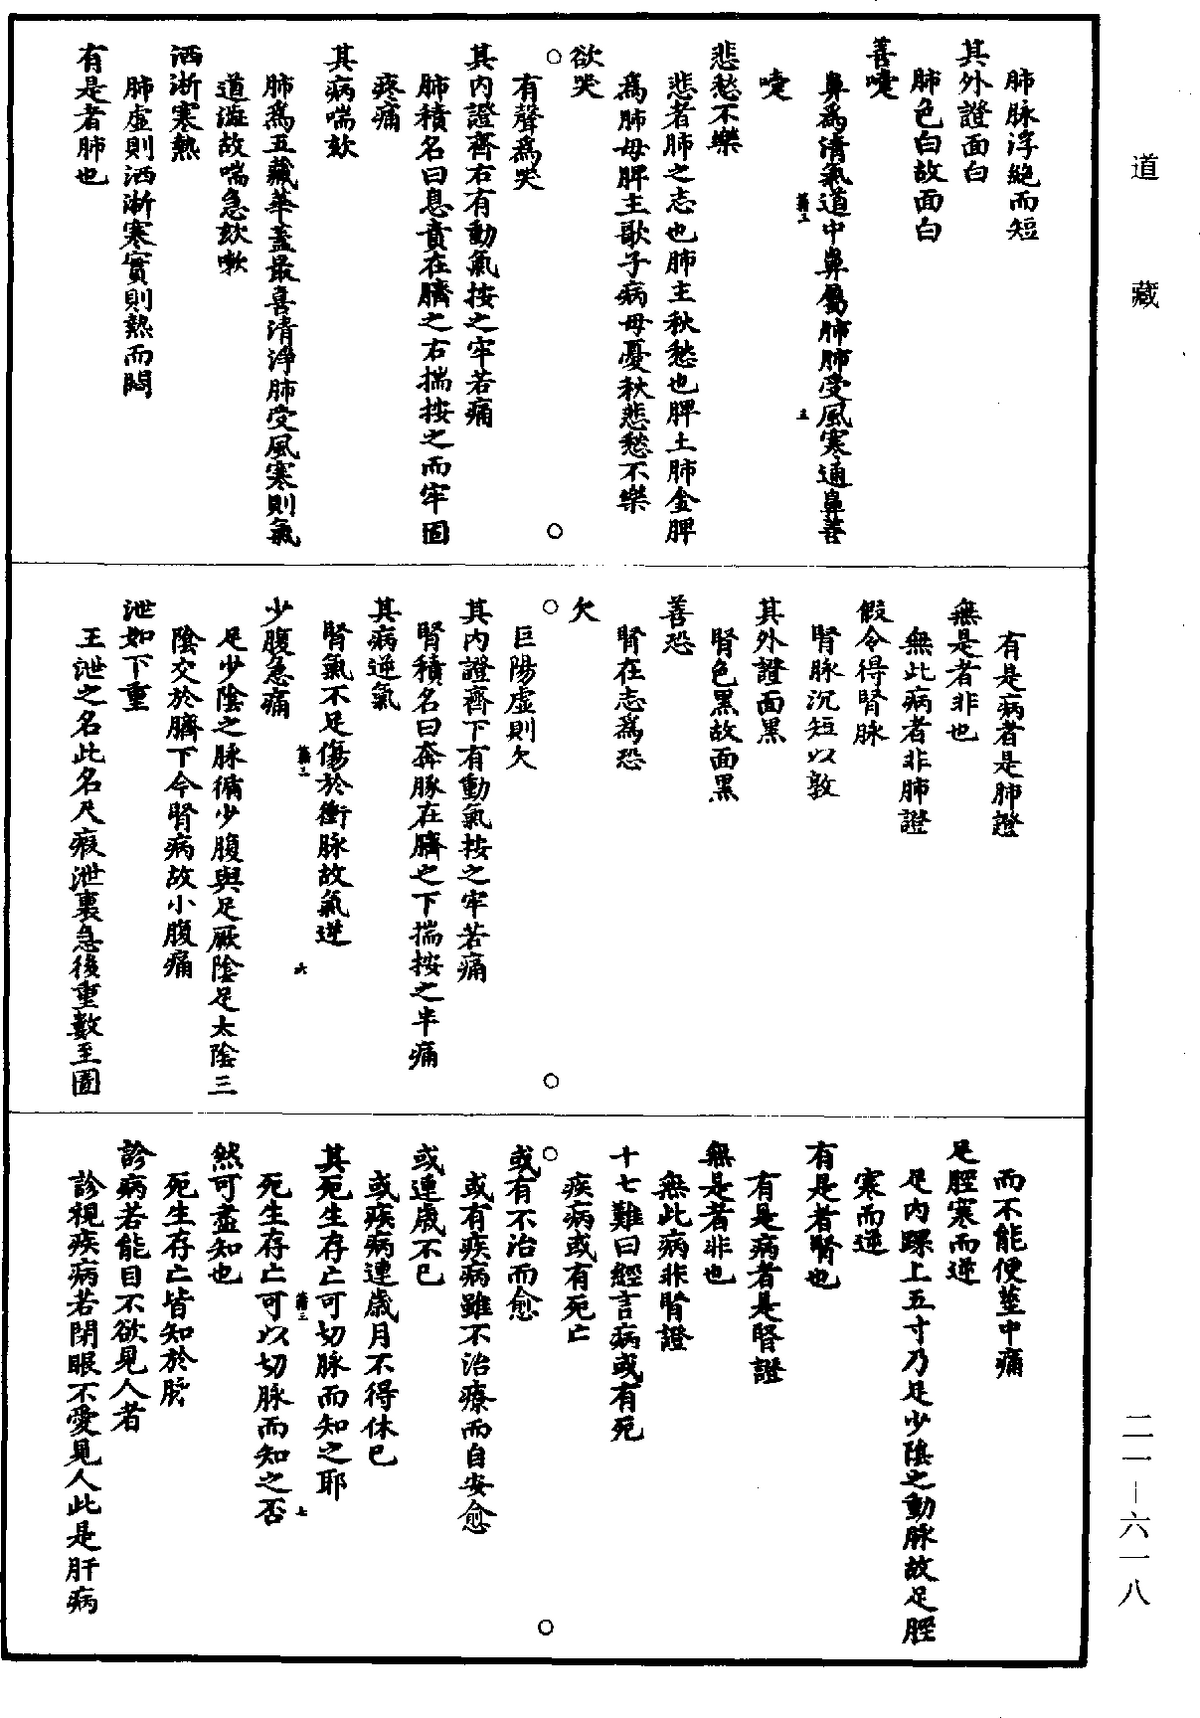 道藏
肺脉浮絶而短
其外證面白
肺色白故面白
善嚏
鼻爲清氣道中鼻屬肺肺受風寒通鼻善
嚏
悲愁不樂
悲者肺之志也肺主秋愁也脾土肺金脾
爲肺母脾主歌子病母憂秋悲愁不樂
欲哭
有聲爲哭
其內證齊右有動氣按之牢若痛
肺積名曰息賁在臍之右揣按之而牢固
疼痛
其病喘欬
肺爲五藏華蓋最喜清淨肺受風寒則氣
道澁故喘急欬嗽
洒淅寒熱
肺虛則洒淅寒實則熱而悶
有是者肺也
有是病者是肺證
無是者非也
無此病者非肺證
假令得腎脉
腎脉沉短以敦
其外證面黑
腎色黑故面黑
善恐
腎在志爲恐
欠
巨陽虛則欠
其內證齊下有動氣按之牢若痛
腎積名曰奔豚在臍之下揣按之牢痛
其病逆氣
腎氣不足傷於衝脉故氣逆
少腹急痛
足少陰之脉循少腹與足厥陰足太陰三
陰交於臍下今腎病故小腹痛
泄如下重
五泄之名此名大瘕泄裏急後重數至圊
而不能便莖中痛
足脛寒而逆
足內踝上五寸乃足少陰之動脉故足脛
寒而逆
有是者腎也
有是病者是腎證
無是者非也
無此病非腎證
十七難曰經言病或有死
疾病或有死亡
或有不治而愈
或有疾病雖不治療而自安愈
或連歲不已
或疾病連歲月不得休已
其死生存亡可切脉而知之耶
死生存亡可以切脉而知之否
然可盡知也
死生存亡皆知於脉
診病若能目不欲見人者
診視疾病若閉眼不愛見人此是肝病
二一—六一八